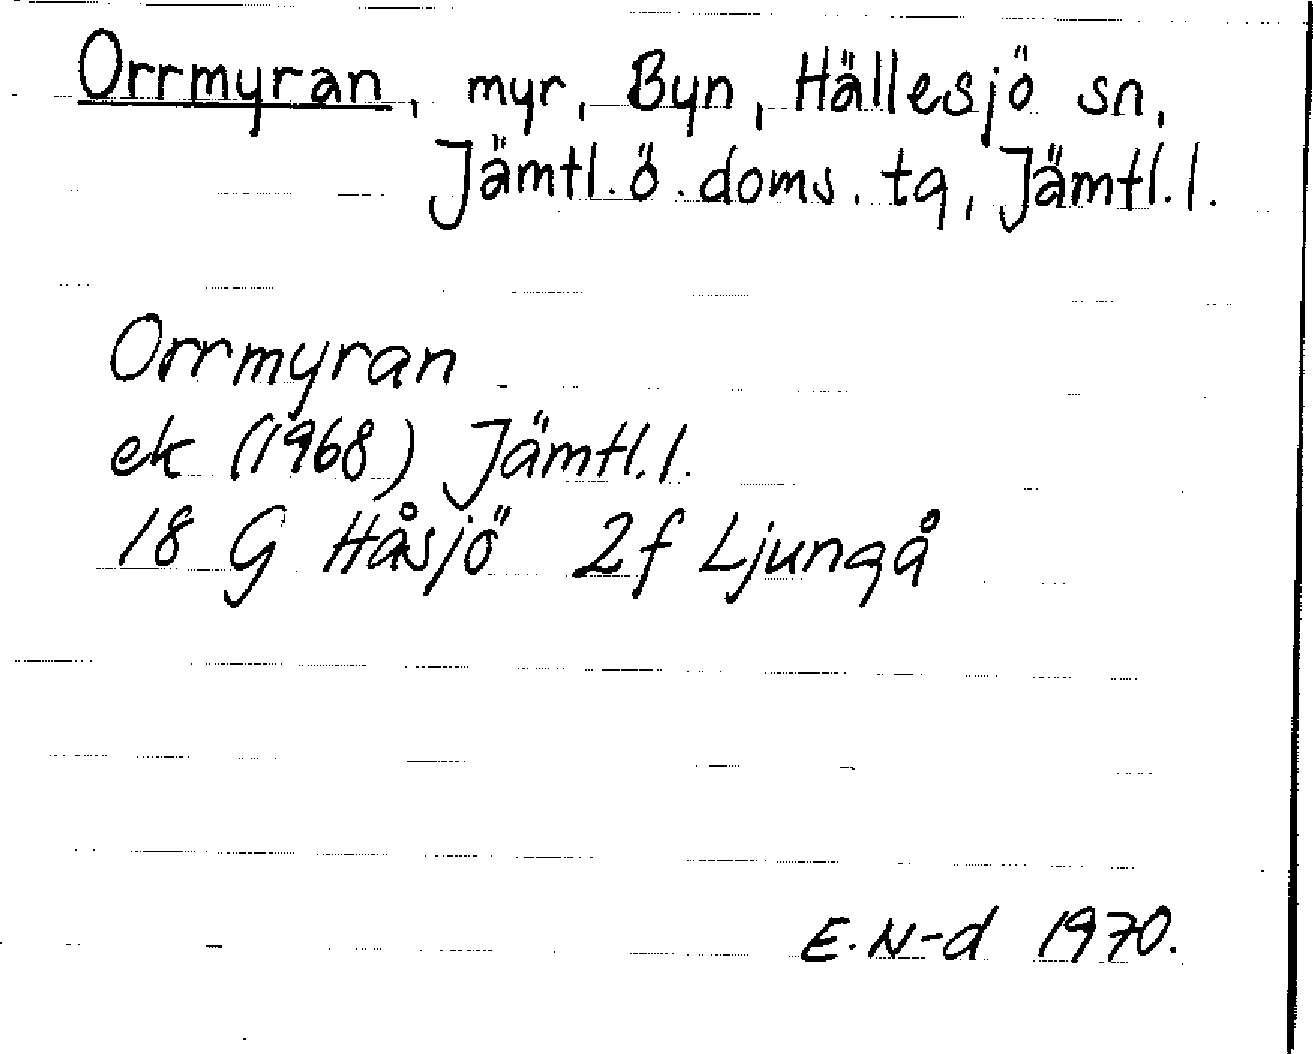 Orrmyran, myr, Byn, Hällesjö sn,
Jämtl. ö. doms. tg, Jämtl. l.
Orrmyran
ek (1968) Jämtl. l.
18 G Håsjö 2f Ljungå
E. N-d 1970.